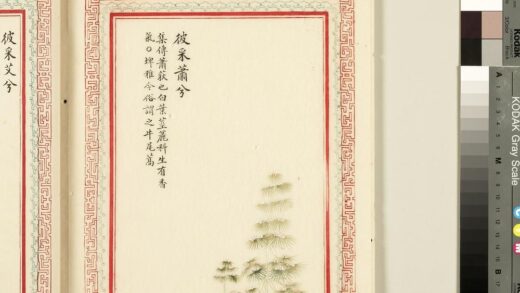 彼采蕭兮
集傳蕭荻也白葉莖麤科生有香
氣〇埤雅今俗謂之牛尾蒿
彼采艾兮
KODAK Gray Scale
Kodak
A 1 2 3 4 5 6 M 8 9 10 11 12 13 14 15 B 17